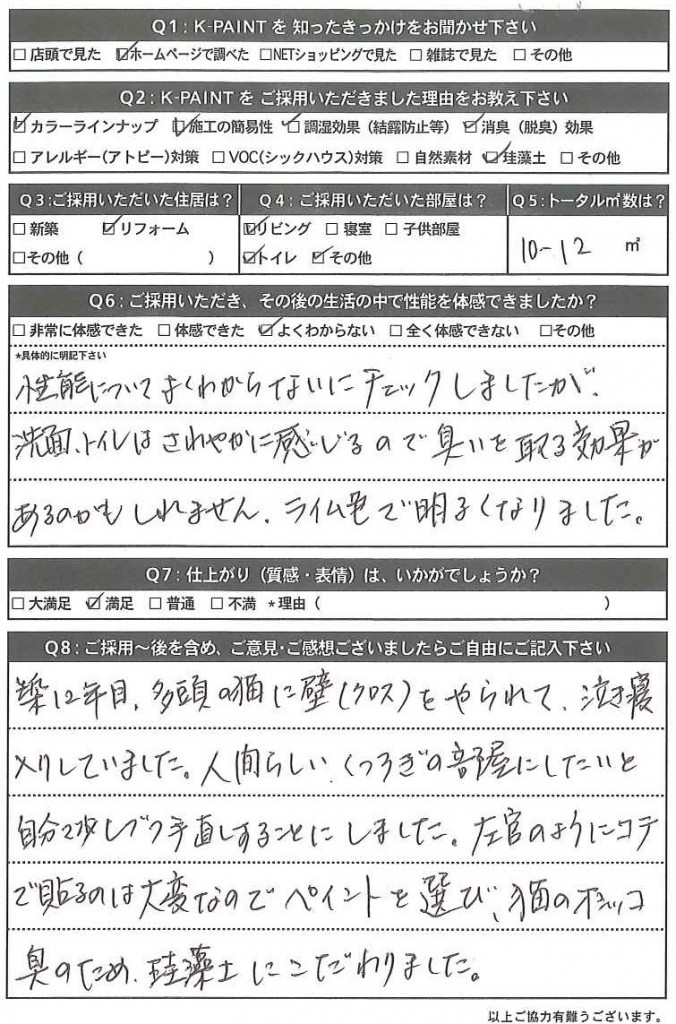 Q1：K-PAINTを 知ったきっかけをお聞かせ下さい
□店頭で見た ☑ホームページで調べた □NETショッピングで見た □雑誌で見た □その他
Q2：K-PAINTを ご採用いただきました理由をお教え下さい
☑カラーラインナップ ☑施工の簡易性 ☑調湿効果（結露防止等） ☑消臭（脱臭）効果
□アレルギー(アトピー)対策 □VOC(シックハウス)対策 □自然素材 ☑珪藻土 □その他
Q3:ご採用いただいた住居は？
□新築 ☑リフォーム
□その他（ ）
Q4：ご採用いただいた部屋は？
☑リビング □寝室 □子供部屋
☑トイレ ☑その他
Q5：トータル㎡数は？
10-12 ㎡
Q6：ご採用いただき、その後の生活の中で性能を体感できましたか？
□非常に体感できた □体感できた ☑よくわからない □全く体感できない □その他
*具体的に明記下さい
性能についてよくわからないにチェックしましたが、
洗面、トイレはさわやかに感じるので臭いを取る効果が
あるのかもしれません。ライム色で明るくなりました。
Q7：仕上がり（質感・表情）は、いかがでしょうか？
□大満足 ☑満足 □普通 □不満 *理由（ ）
Q8：ご採用～後を含め、ご意見・ご感想ございましたらご自由にご記入下さい
築12年目、多頭の猫に壁(クロス)をやられて、泣き寝
入りしていました。人間らしい、くつろぎの部屋にしたいと
自分で少しづつ手直しすることにしました。左官のようにコテ
で貼るのは大変なのでペイントを選び、猫のオシッコ
臭のため、珪藻土にこだわりました。
以上ご協力有難うございます。